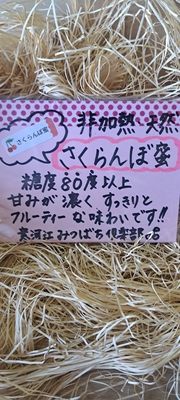 非加熱 天然
さくらんぼ蜜
さくらんぼ蜜
糖度80度以上
甘みが濃く すっきりと
フルーティーな味わいです!!
寒河江みつばち倶楽部